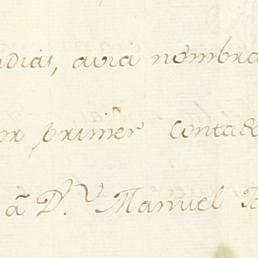 ndias, avia nombra
or primêr contad
â D.ⁿ Manuel B